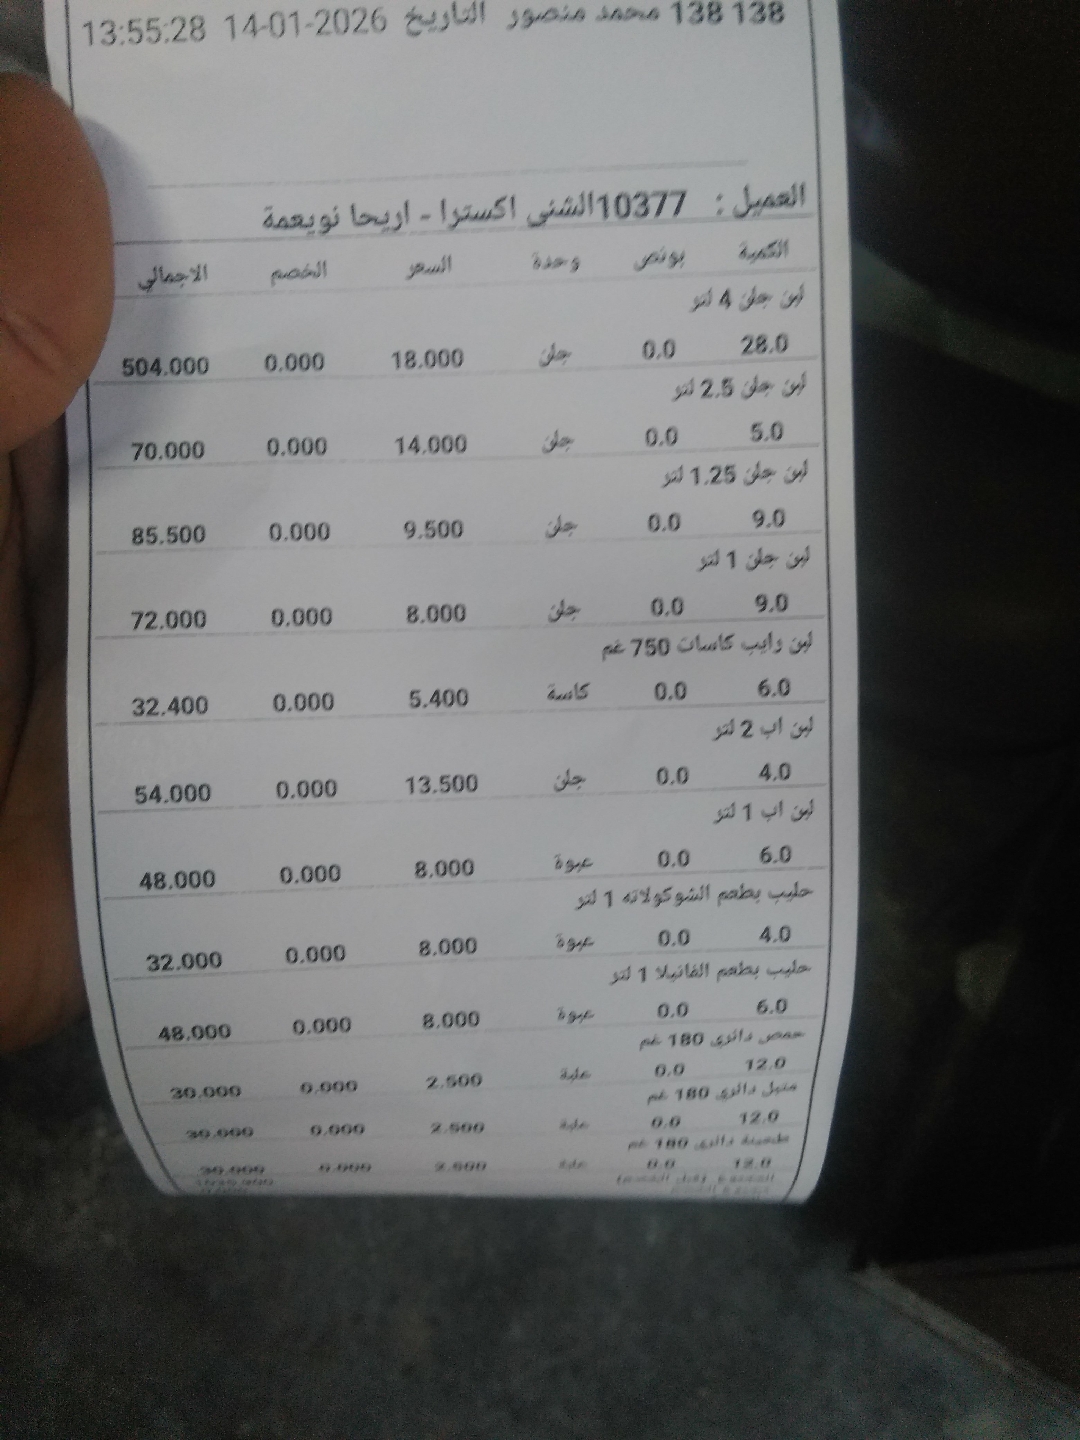 138 138 محمد منصور التاريخ 14-01-2026 13:55:28
العميل : 10377الشني اكسترا - اريحا نويعمة
الكمية بونص وحدة السعر الخصم الاجمالي
لبن جلن 4 لتر
28.0 0.0 جلن 18.000 0.000 504.000
لبن جلن 2.5 لتر
5.0 0.0 جلن 14.000 0.000 70.000
لبن جلن 1.25 لتر
9.0 0.0 جلن 9.500 0.000 85.500
لبن جلن 1 لتر
9.0 0.0 جلن 8.000 0.000 72.000
لبن رايب كاسات 750 غم
6.0 0.0 كاسة 5.400 0.000 32.400
لبن اب 2 لتر
4.0 0.0 جلن 13.500 0.000 54.000
لبن اب 1 لتر
6.0 0.0 عبوة 8.000 0.000 48.000
حليب بطعم الشوكولاته 1 لتر
4.0 0.0 عبوة 8.000 0.000 32.000
حليب بطعم الفانيلا 1 لتر
6.0 0.0 عبوة 8.000 0.000 48.000
حمص دائري 180 غم
12.0 0.0 علبة 2.500 0.000 30.000
متبل دائري 180 غم
12.0 0.0 علبة 2.500 0.000 30.000
طحينة دائري 180 غم
12.0 0.0 علبة 2.500 0.000 30.000
المجموع (قبل الخصم)